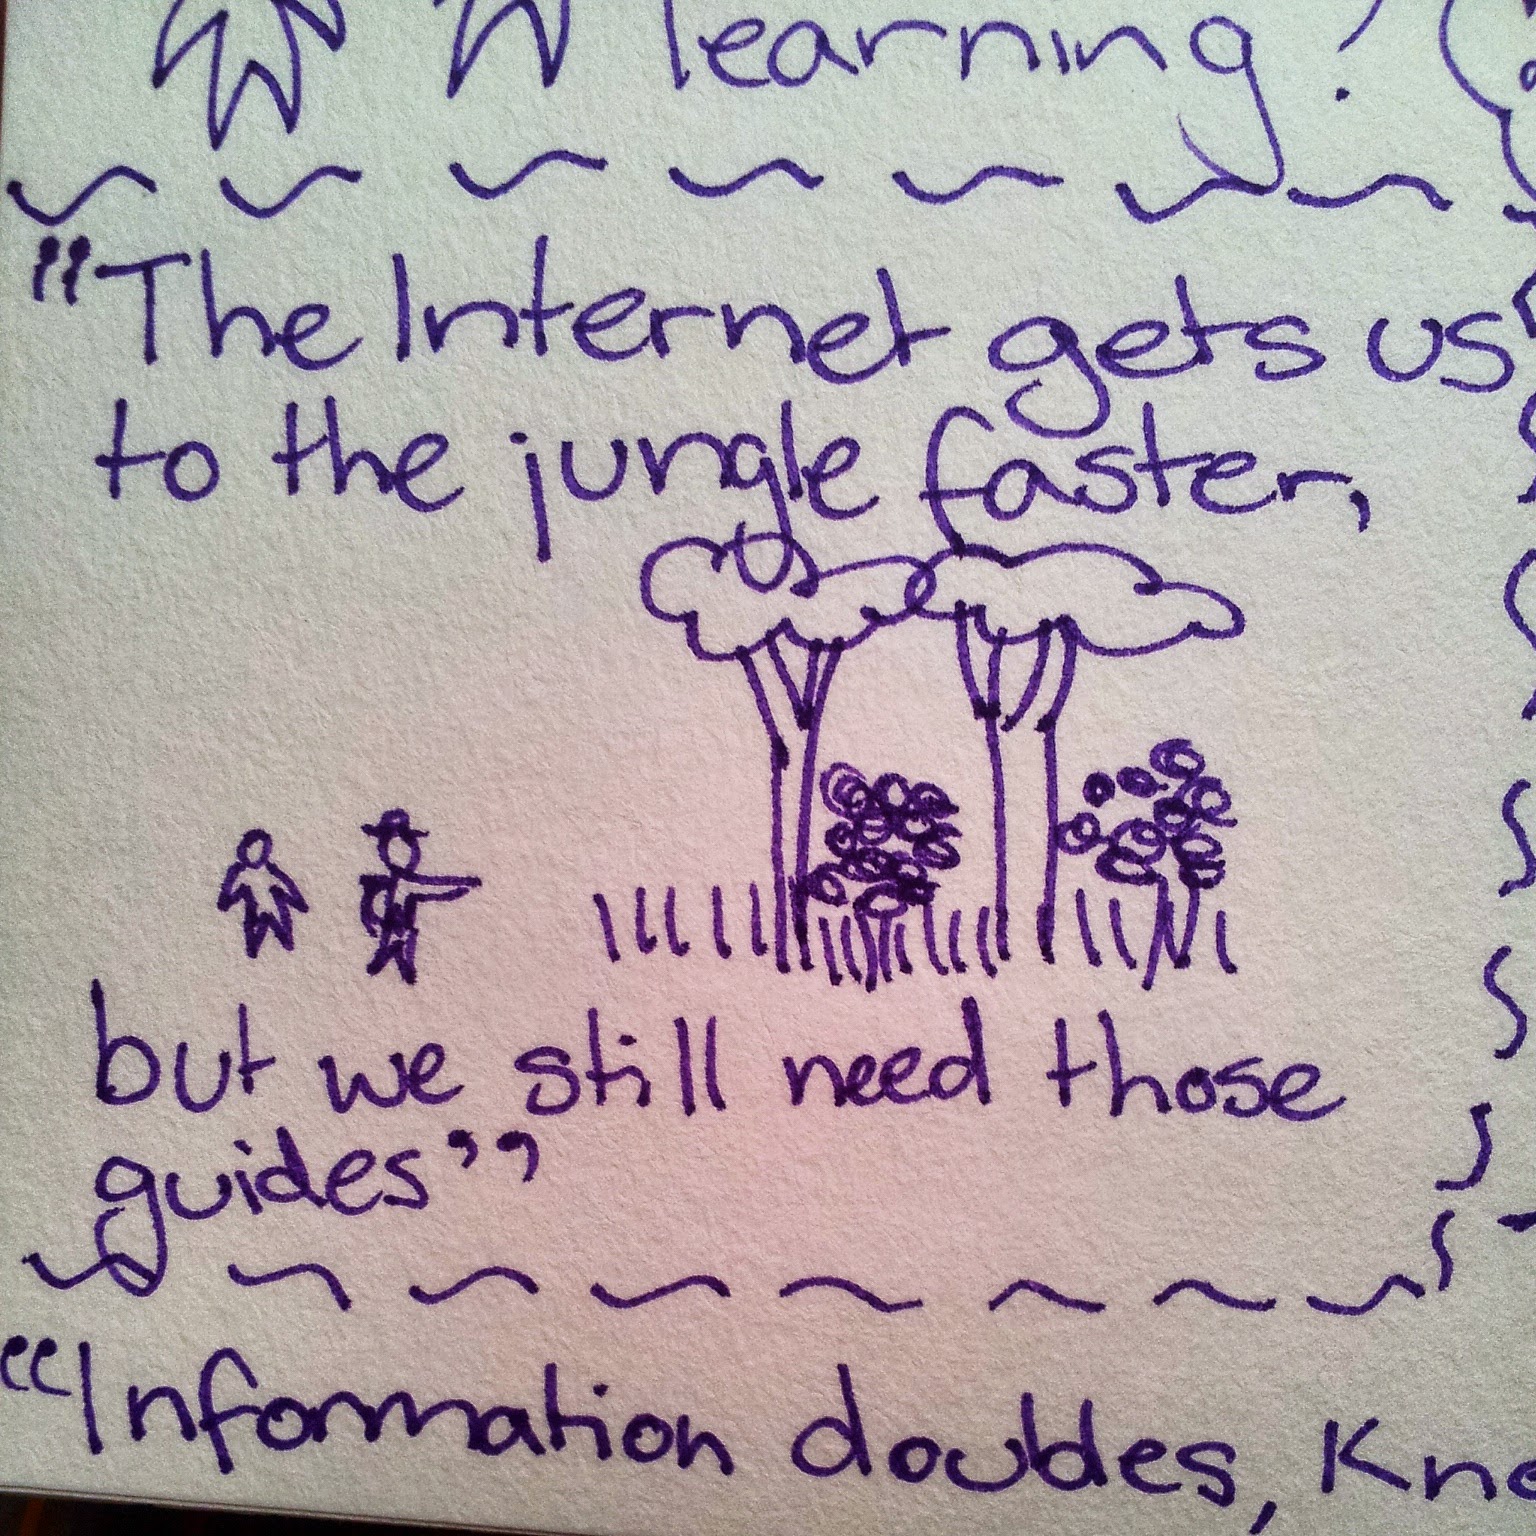 learning?
"The Internet gets us
to the jungle faster,
but we still need those
guides”
“Information doubles,